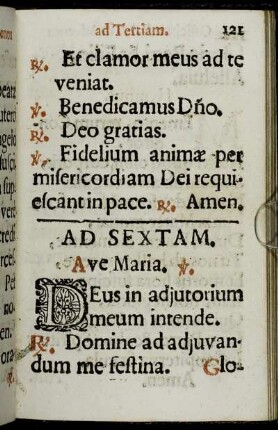 ad Tertiam. 121
℟. Et clamor meus ad te
veniat.
℣. Benedicamus Dño.
℟. Deo gratias.
℣. Fidelium animæ per
misericordiam Dei requi-
escant in pace. ℟. Amen.
AD SEXTAM.
Ave Maria. ℣.
DEus in adjutorium
meum intende.
℟. Domine ad adjuvan-
dum me festina. Glo-